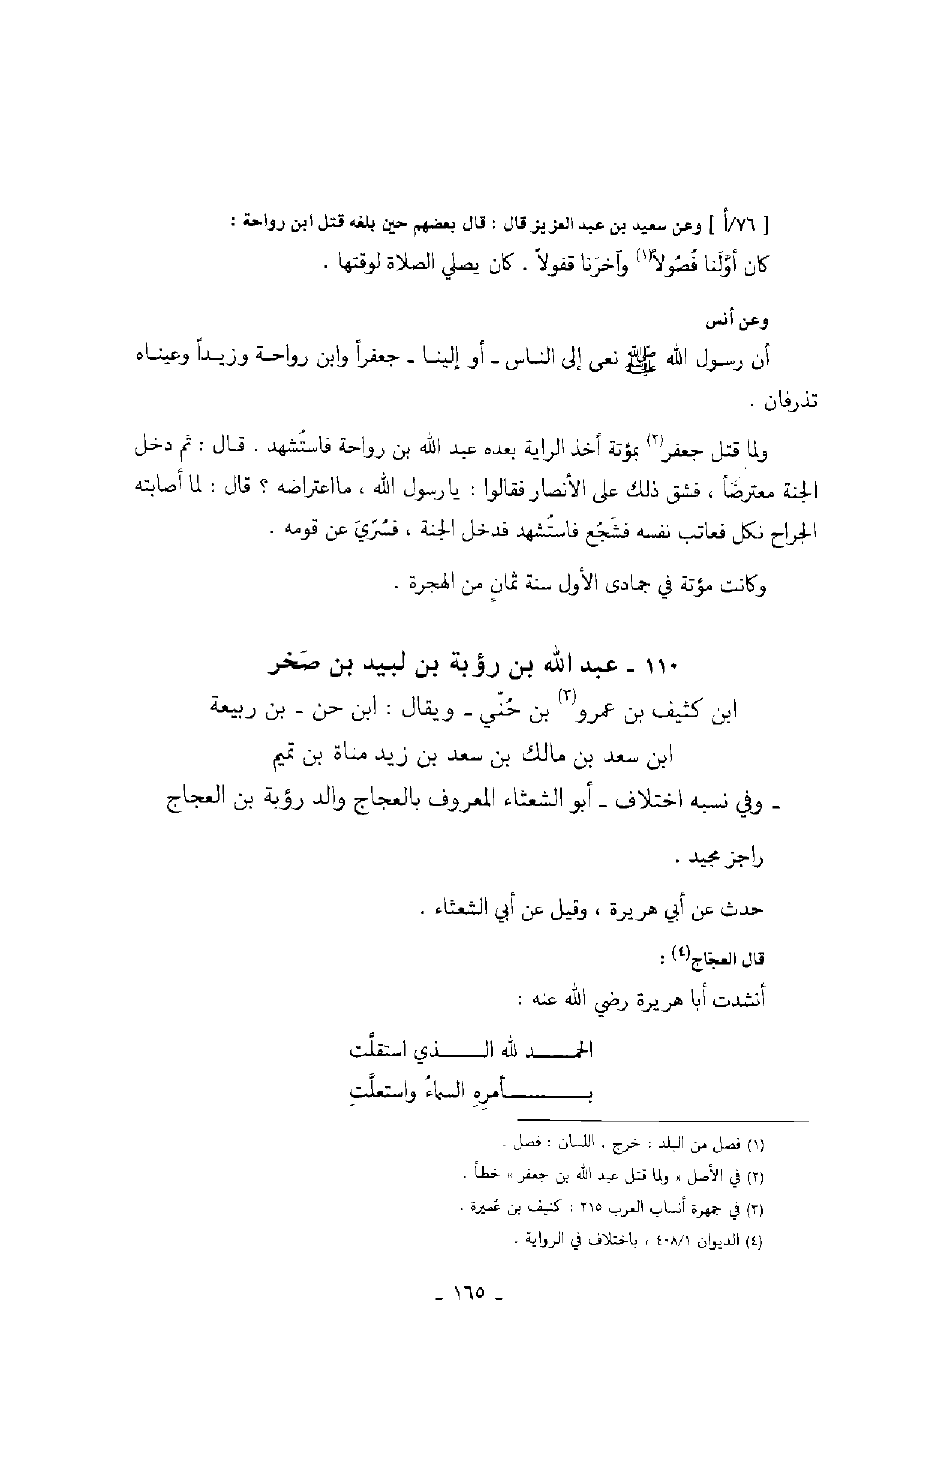 [ ٧٦/أ ] وعن سعيد بن عبد العزيز قال : قال بعضهم حين بلغه قتل ابن رواحة :
كان أوَّلَنا فُصُولاً(١) وآخرَنا قفولاً . كان يصلي الصلاة لوقتها .
وعن أنس
أن رسول الله ﷺ نعى إلى الناس ـ أو إلينا ـ جعفراً وابن رواحة وزيداً وعيناه
تذرفان .
ولما قتل جعفر(٢) بمؤتة أخذ الراية بعده عبد الله بن رواحة فاستُشهد . قال : ثم دخل
الجنة معترضاً ، فشق ذلك على الأنصار فقالوا : يارسول الله ، مااعتراضه ؟ قال : لما أصابته
الجراح نكل فعاتب نفسه فشَجُع فاستُشهد فدخل الجنة ، فسُرّيَ عن قومه .
وكانت مؤتة في جمادى الأول سنة ثمانٍ من الهجرة .
١١٠ ـ عبد الله بن رؤبة بن لبيد بن صَخر
ابن كثيف بن عمرو(٣) بن حُنّي ـ ويقال : ابن حن ـ بن ربيعة
ابن سعد بن مالك بن سعد بن زيد مناة بن تميم
ـ وفي نسبه اختلاف ـ أبو الشعثاء المعروف بالعجاج والد رؤبة بن العجاج
راجز مجيد .
حدث عن أبي هريرة ، وقيل عن أبي الشعثاء .
قال العجاج(٤) :
أنشدت أبا هريرة رضي الله عنه :
الحمـــد لله الـــذي استقلَّت
بـــأمرِهِ السماءُ واستعلَّتِ
(١) فصل من البلد : خرج . اللسان : فصل .
(٢) في الأصل « ولما قتل عبد الله بن جعفر » خطأ .
(٣) في جمهرة أنساب العرب ٢١٥ : كنيف بن عُميرة .
(٤) الديوان ٤٠٨/١ ، باختلاف في الرواية .
ـ ١٦٥ ـ